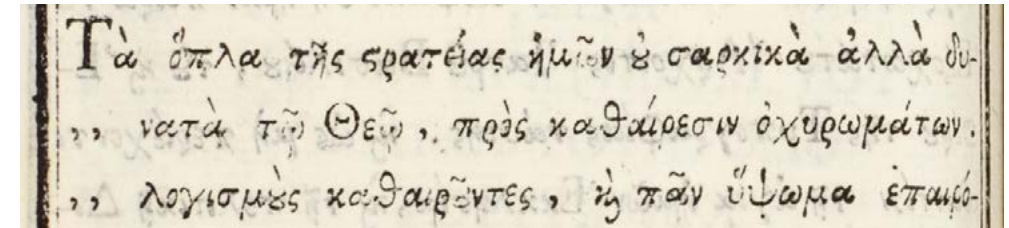 Τὰ ὅπλα τῆς ϛρατείας ἡμῶν ȣ σαρκικὰ ἀλλὰ δυ-
,, νατὰ τῷ Θεῷ, πρὸς καθαίρεσιν ὀχυρωμάτων.
,, λογισμȣ̀ς καθαιρȣ͂ντες, ϗ̀ πᾶν ὕψωμα ἐπαιρό-